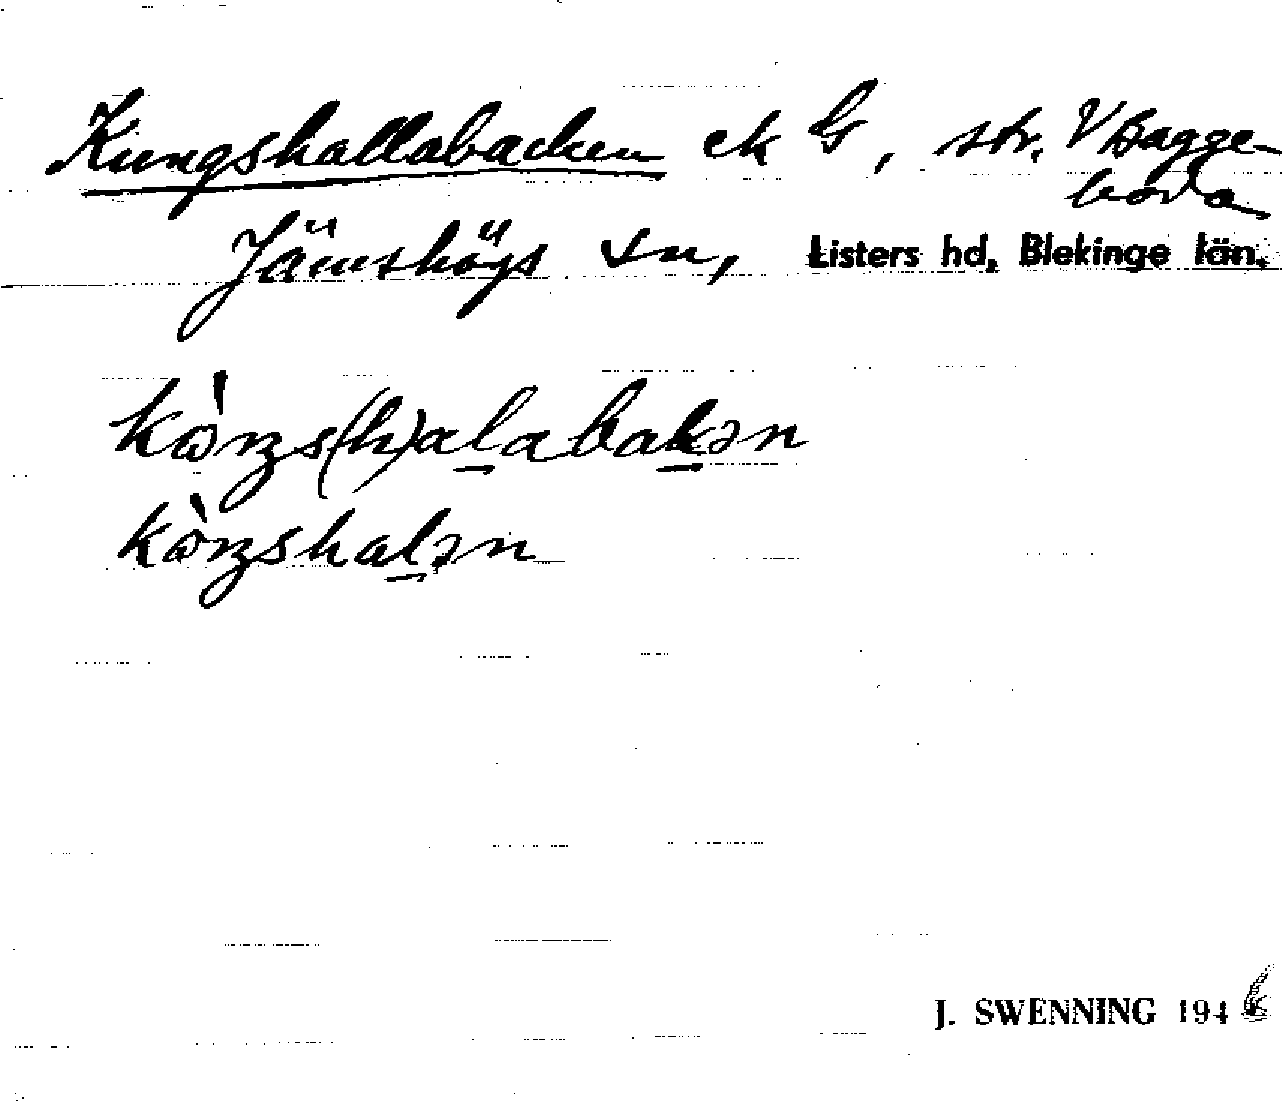 Kungshallabacken ek G, str. V Bagge-
boda
Jämshögs sn, Listers hd, Blekinge län.
kàŋs(h)alabakən
kàŋshalən
J. SWENNING 1946